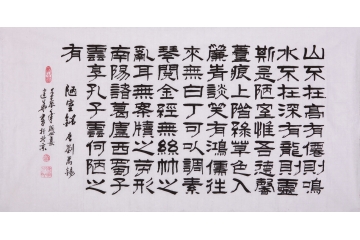 山不在高有僊則
水不在深有龍則靈
斯是陋室惟吾德馨
苔痕上階綠草色入
簾青談笑有鴻儒往
來無白丁可以調素
琴閱金經無絲竹之
亂耳無案牘之勞形
南陽諸葛廬西蜀子
雲亭孔子雲何陋之
有
陋室銘 唐劉禹錫
書於北京